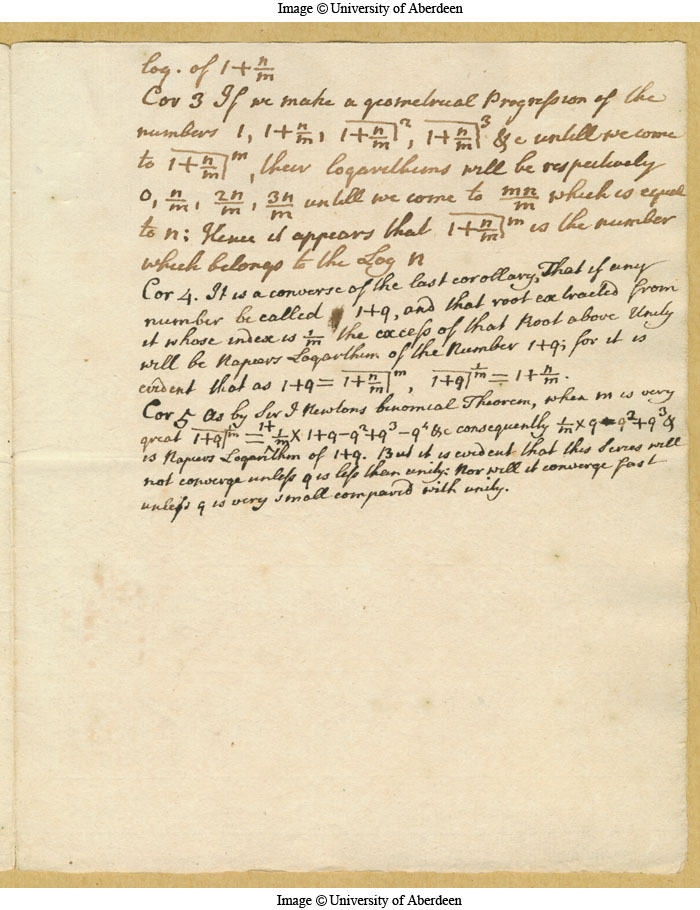 Image © University of Aberdeen
log. of 1+n/m
Cor 3 If we make a geometrical Progression of the
numbers 1, 1+n/m, \overline{1+n/m}|², \overline{1+n/m}|³ &c untill we come
to \overline{1+n/m}|ᵐ, their logarithms will be respectively
0, n/m, 2n/m, 3n/m untill we come to mn/m which is equal
to n; Hence it appears that \overline{1+n/m}|ᵐ is the number
which belongs to the Log n
Cor 4. It is a converse of the last corollary, That if any
number be called 1+q, and that root extracted from
it whose index is 1/m the excess of that Root above Unity
will be Napiers Logarithm of the Number 1+q; for it is
evident that as 1+q = \overline{1+n/m}|ᵐ, \overline{1+q}|^{1/m} = 1+n/m.
Cor 5 As by Sir I Newtons binomial Theorem, when m is very
great \overline{1+q}|^{1/m} = 1+ 1/m × 1+q−q²+q³−q⁴ &c consequently 1/m × q−q²+q³ &
is Napiers Logarithm of 1+q. But it is evident that this Series will
not converge unless q is less than unity: Nor will it converge fast
unless q is very small compared with unity.
Image © University of Aberdeen